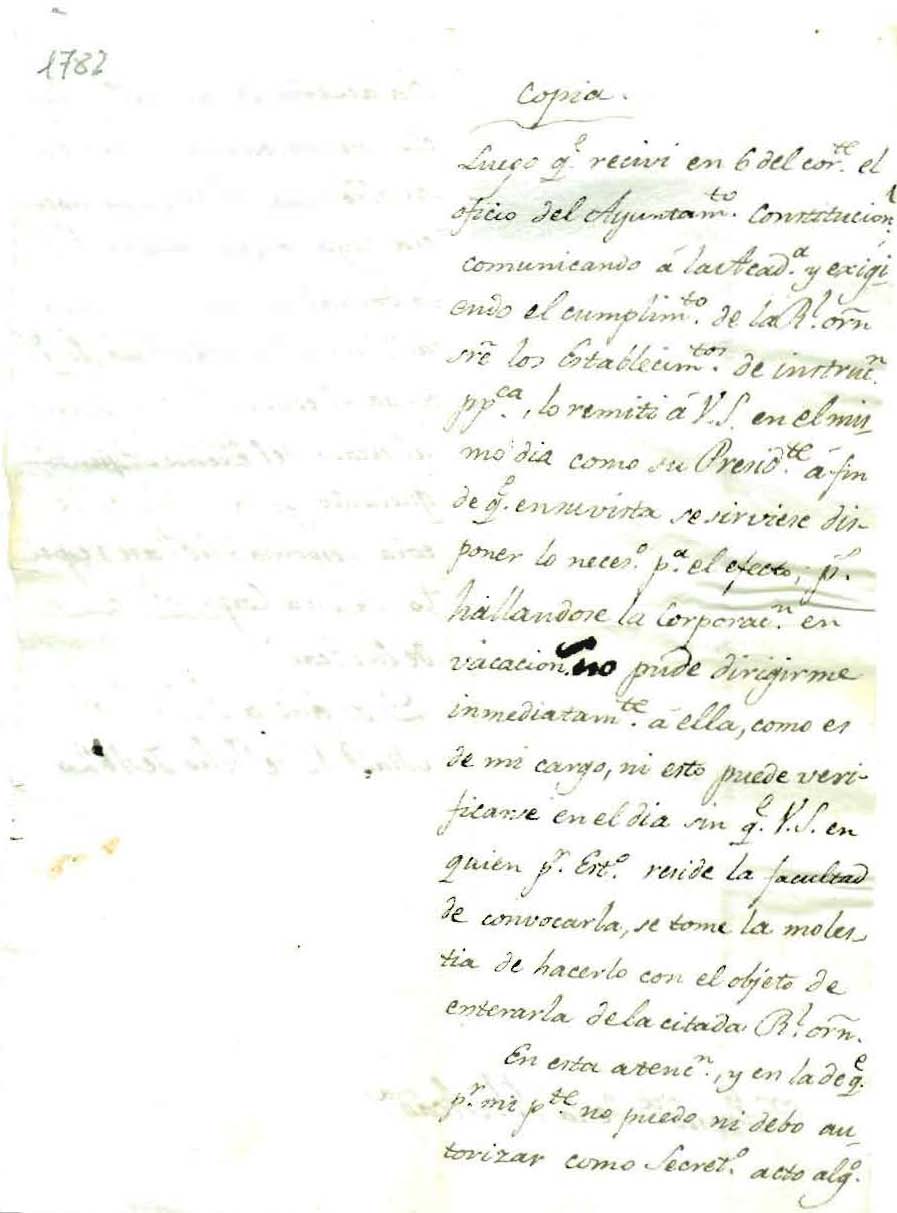 1782
Copia.
Luego q.e recivi en 6 del cor.te el
oficio del Ayuntam.to Constitucion.l
comunicando á la Acad.a y exigi-
endo el cumplim.to de la R.l orñ
sre los Establecim.tos de instruc.n
pp.ca, lo remiti á V.S. en el mis-
mo dia como su Presid.te á fin
de q.e en su vista se sirviese dis-
poner lo neces.o p.a el efecto; p.s
hallandose la Corporac.n en
vacacion no pude dirigirme
inmediatam.te á ella, como es
de mi cargo, ni esto puede veri-
ficarse en el dia sin q.e V.S. en
quien p.r Est.o reside la facultad
de convocarla, se tome la moles-
tia de hacerlo con el objeto de
enterarla de la citada R.l orñ.
En esta atenc.n, y en la de q.e
p.r mi p.te no puedo ni debo au-
torizar como Secret.o acto alg.o